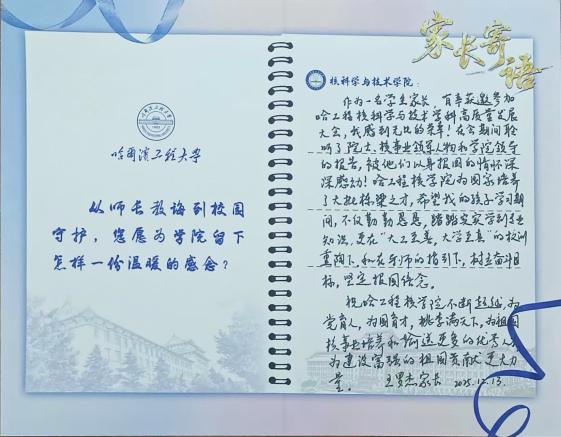 家长寄语
哈尔滨工程大学
从师长教诲到校园
守护，您愿为学院留下
怎样一份温暖的感念？
核科学与技术学院：
作为一名学生家长，有幸获邀参加
哈工程核科学与技术学科高质量发展
大会，我感到无比的荣幸！在会期间聆
听了院士、核事业领军人物和学院领导
的报告，被他们以身报国的情怀深
深感动！哈工程核学院为国家培养
了大批栋梁之才，希望我的孩子学习期
间，不仅勤勤恳恳，踏踏实实学到专业
知识，更在“大工至善，大学至真”的校训
熏陶下，和在导师的指引下，树立奋斗目
标，坚定报国信念。
祝哈工程核学院不断超越，为
党育人，为国育才，桃李满天下，为祖国
核事业培养和输送更多的优秀人
为建设富强的祖国贡献更大力
量。 王罗杰家长 2025.12.13.